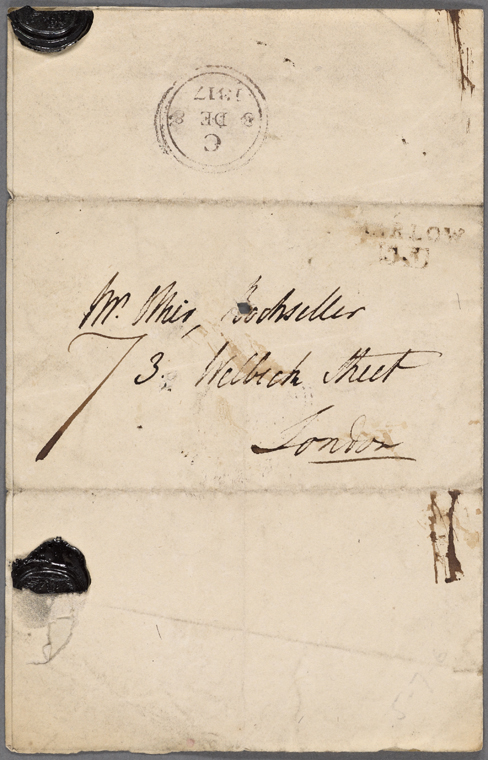 C
8 DE 8
1817
MARLOW
Mr. Ollier, Bookseller
7 3. Welbeck Street
London